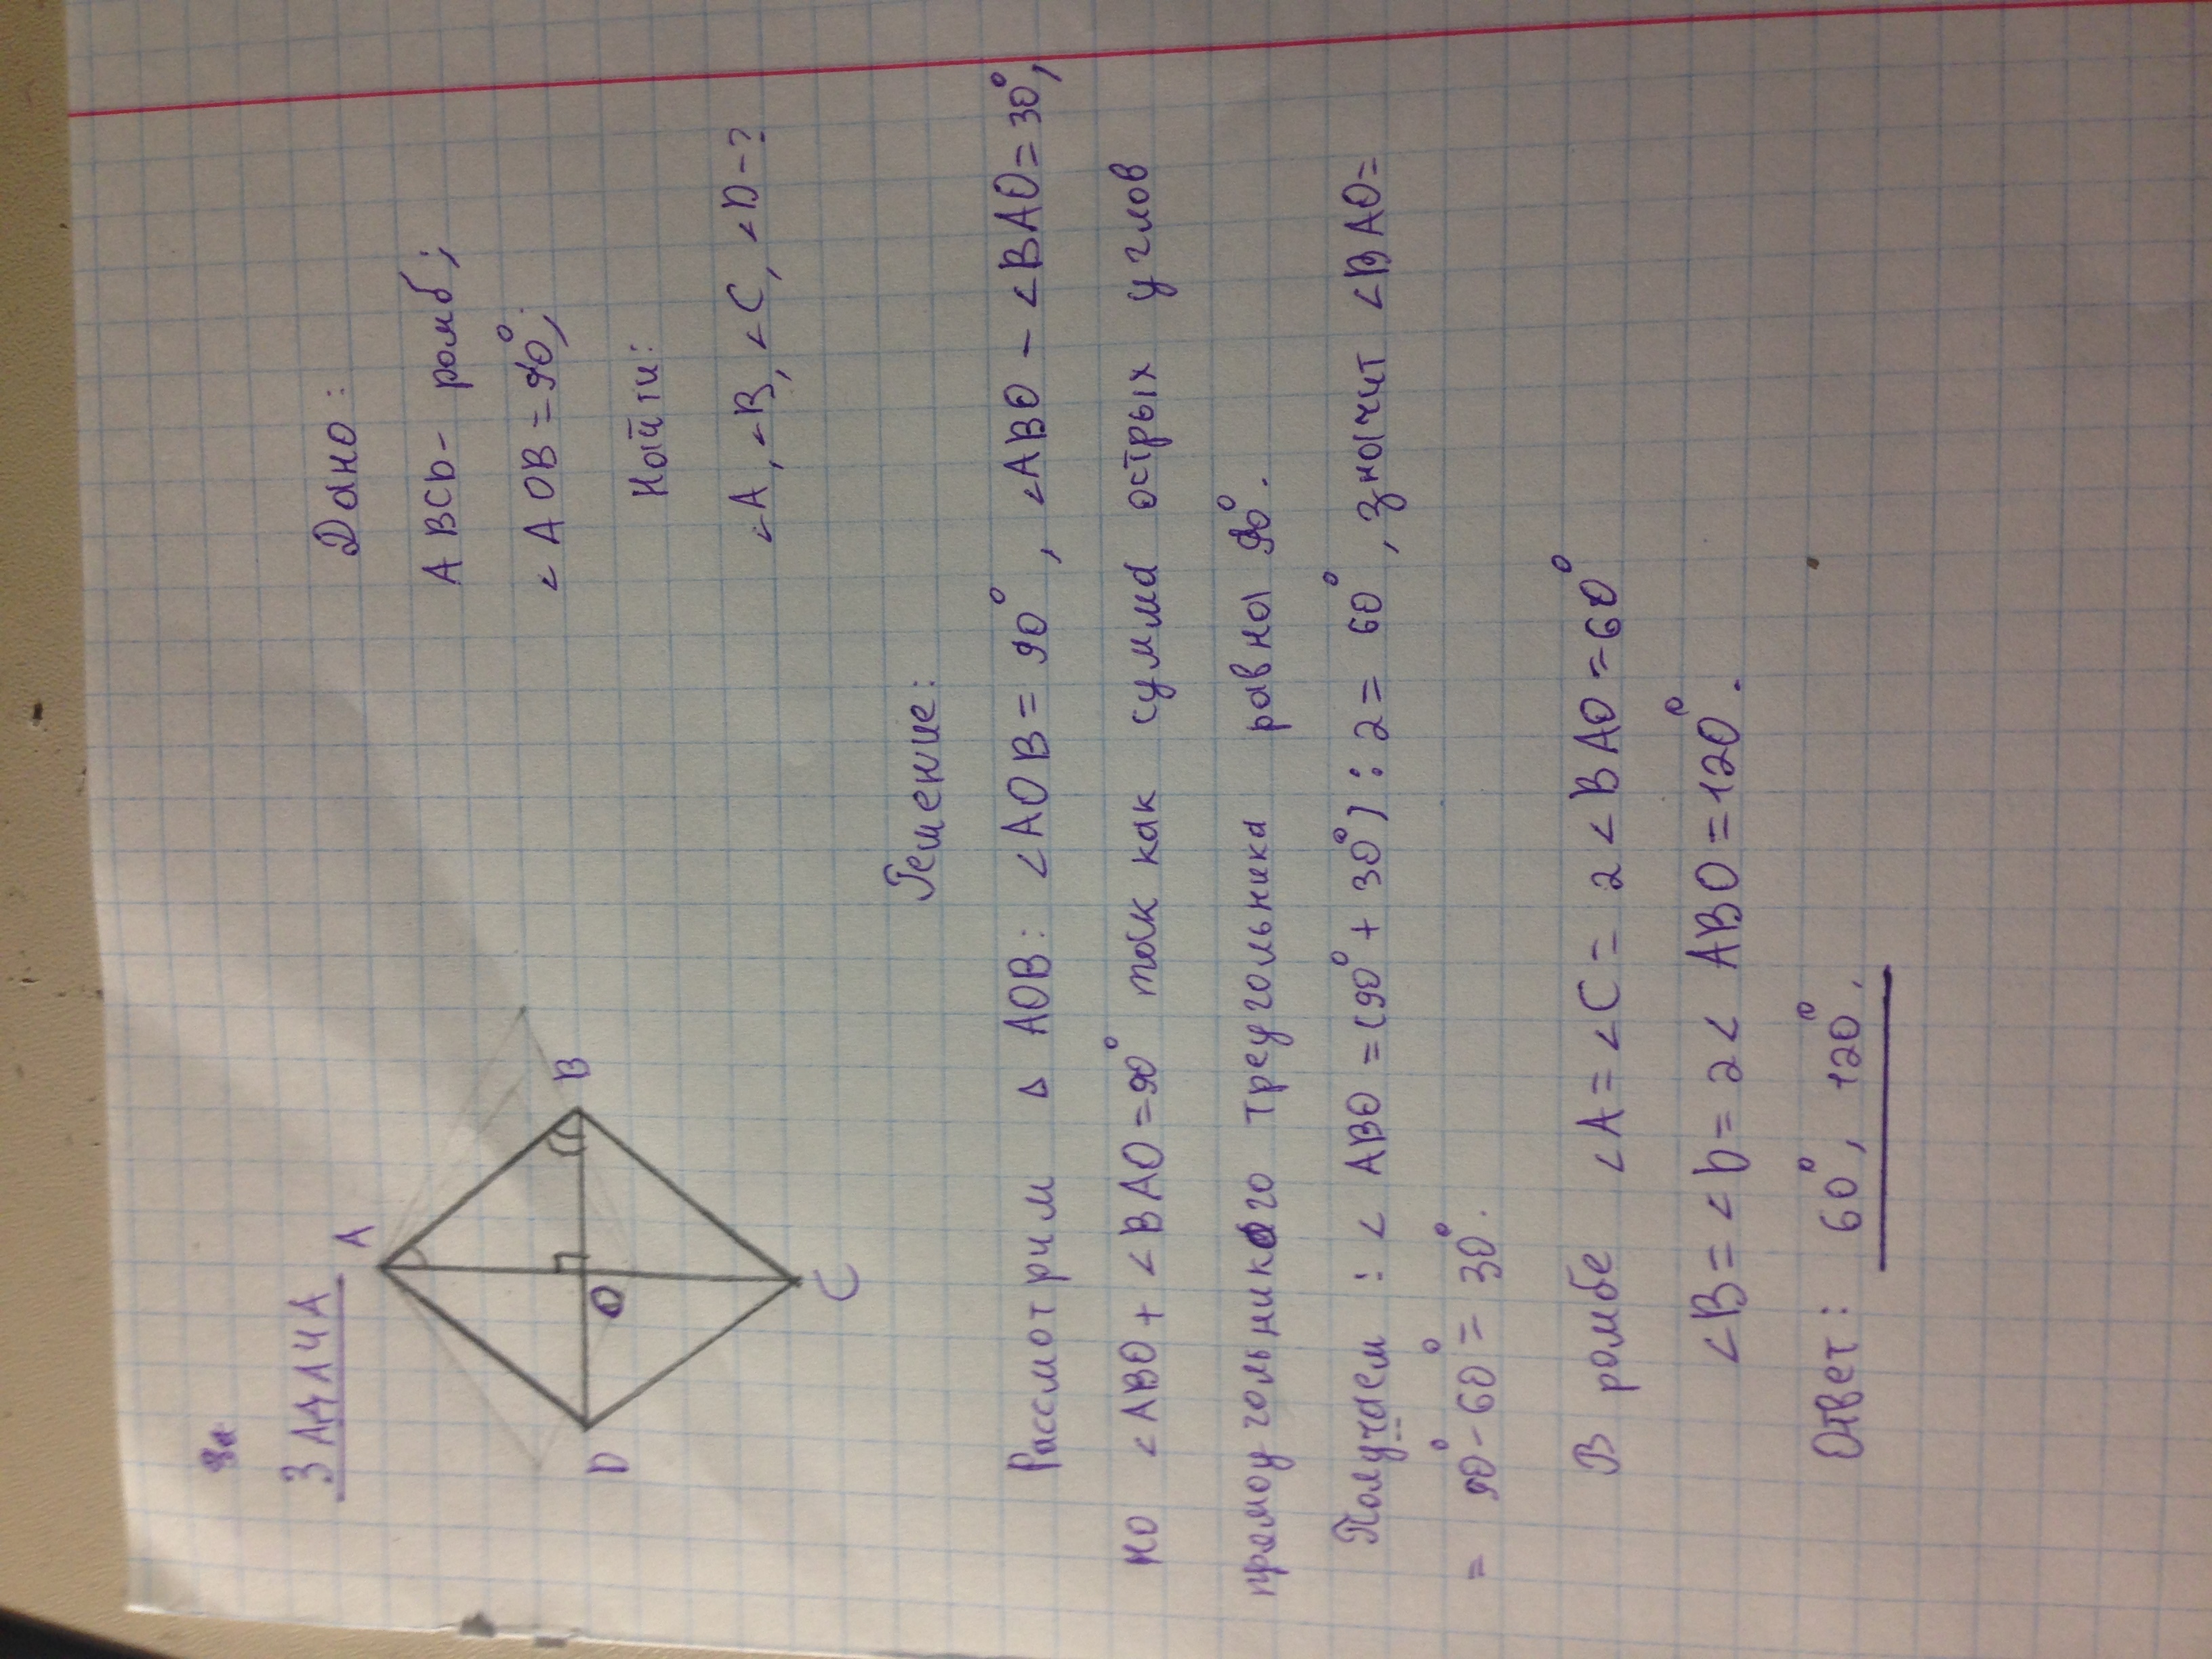 8а
ЗАДАЧА
A
B
C
D
O
Дано:
ABCD - ромб;
∠AOB = 90°;
Найти:
∠A, ∠B, ∠C, ∠D - ?
Решение:
Рассмотрим Δ AOB: ∠AOB = 90°, ∠ABO - ∠BAO = 30°,
но ∠ABO + ∠BAO = 90° так как сумма острых углов
прямоугольникого треугольника равна 90°.
Получаем : ∠ ABO = (90° + 30°) : 2 = 60°, значит ∠BAO =
= 90° - 60° = 30°.
В ромбе ∠A = ∠C = 2∠BAO = 60°
∠B = ∠D = 2∠ABO = 120°.
Ответ: 60°, 120°.